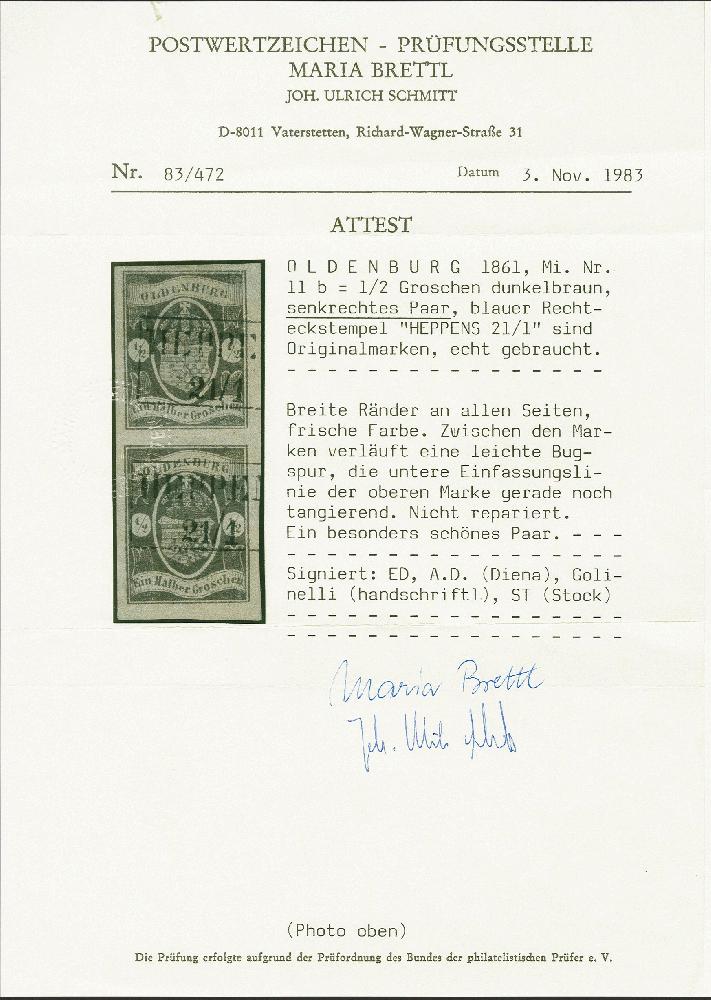 POSTWERTZEICHEN - PRÜFUNGSSTELLE
MARIA BRETTL
JOH. ULRICH SCHMITT
D-8011 Vaterstetten, Richard-Wagner-Straße 31
Nr. 83/472 Datum 3. Nov. 1983
ATTEST
OLDENBURG
1/2 1/2
21/1
Ein Halber Groschen
OLDENBURG
HEPPEN
1/2 1/2
21/1
Ein Halber Groschen
O L D E N B U R G 1861, Mi. Nr.
11 b = 1/2 Groschen dunkelbraun,
senkrechtes Paar, blauer Recht-
eckstempel "HEPPENS 21/1" sind
Originalmarken, echt gebraucht.
- - - - - - - - - - - - - - - -
Breite Ränder an allen Seiten,
frische Farbe. Zwischen den Mar-
ken verläuft eine leichte Bug-
spur, die untere Einfassungsli-
nie der oberen Marke gerade noch
tangierend. Nicht repariert.
Ein besonders schönes Paar. - - -
- - - - - - - - - - - - - - - - -
Signiert: ED, A.D. (Diena), Goli-
nelli (handschriftl.), ST (Stock)
- - - - - - - - - - - - - - - - -
- - - - - - - - - - - - - - - - -
Maria Brettl
Joh.
(Photo oben)
Die Prüfung erfolgte aufgrund der Prüfordnung des Bundes der philatelistischen Prüfer e. V.